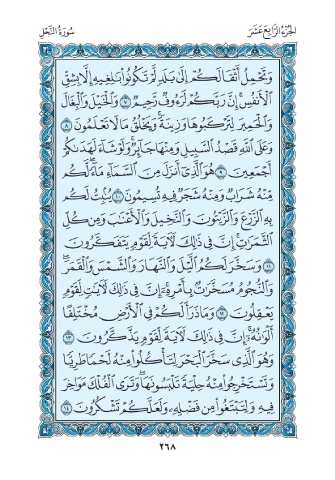 الجزء الرابع عشر
سورة النحل
وَتَحْمِلُ أَثْقَالَكُمْ إِلَىٰ بَلَدٍ لَّمْ تَكُونُوا۟ بَٰلِغِيهِ إِلَّا بِشِقِّ
ٱلْأَنفُسِ ۚ إِنَّ رَبَّكُمْ لَرَءُوفٌ رَّحِيمٌ ٧ وَٱلْخَيْلَ وَٱلْبِغَالَ
وَٱلْحَمِيرَ لِتَرْكَبُوهَا وَزِينَةً ۚ وَيَخْلُقُ مَا لَا تَعْلَمُونَ ٨
وَعَلَى ٱللَّهِ قَصْدُ ٱلسَّبِيلِ وَمِنْهَا جَآئِرٌ ۚ وَلَوْ شَآءَ لَهَدَىٰكُمْ
أَجْمَعِينَ ٩ هُوَ ٱلَّذِىٓ أَنزَلَ مِنَ ٱلسَّمَآءِ مَآءً ۖ لَّكُم
مِّنْهُ شَرَابٌ وَمِنْهُ شَجَرٌ فِيهِ تُسِيمُونَ ١٠ يُنۢبِتُ لَكُم
بِهِ ٱلزَّرْعَ وَٱلزَّيْتُونَ وَٱلنَّخِيلَ وَٱلْأَعْنَٰبَ وَمِن كُلِّ
ٱلثَّمَرَٰتِ ۗ إِنَّ فِى ذَٰلِكَ لَءَايَةً لِّقَوْمٍ يَتَفَكَّرُونَ
١١ وَسَخَّرَ لَكُمُ ٱلَّيْلَ وَٱلنَّهَارَ وَٱلشَّمْسَ وَٱلْقَمَرَ ۖ
وَٱلنُّجُومُ مُسَخَّرَٰتٌۢ بِأَمْرِهِۦٓ ۗ إِنَّ فِى ذَٰلِكَ لَءَايَٰتٍ لِّقَوْمٍ
يَعْقِلُونَ ١٢ وَمَا ذَرَأَ لَكُمْ فِى ٱلْأَرْضِ مُخْتَلِفًا
أَلْوَٰنُهُۥٓ ۗ إِنَّ فِى ذَٰلِكَ لَءَايَةً لِّقَوْمٍ يَذَّكَّرُونَ ١٣
وَهُوَ ٱلَّذِى سَخَّرَ ٱلْبَحْرَ لِتَأْكُلُوا۟ مِنْهُ لَحْمًا طَرِيًّا
وَتَسْتَخْرِجُوا۟ مِنْهُ حِلْيَةً تَلْبَسُونَهَا وَتَرَى ٱلْفُلْكَ مَوَاخِرَ
فِيهِ وَلِتَبْتَغُوا۟ مِن فَضْلِهِۦ وَلَعَلَّكُمْ تَشْكُرُونَ ١٤
٢٦٨